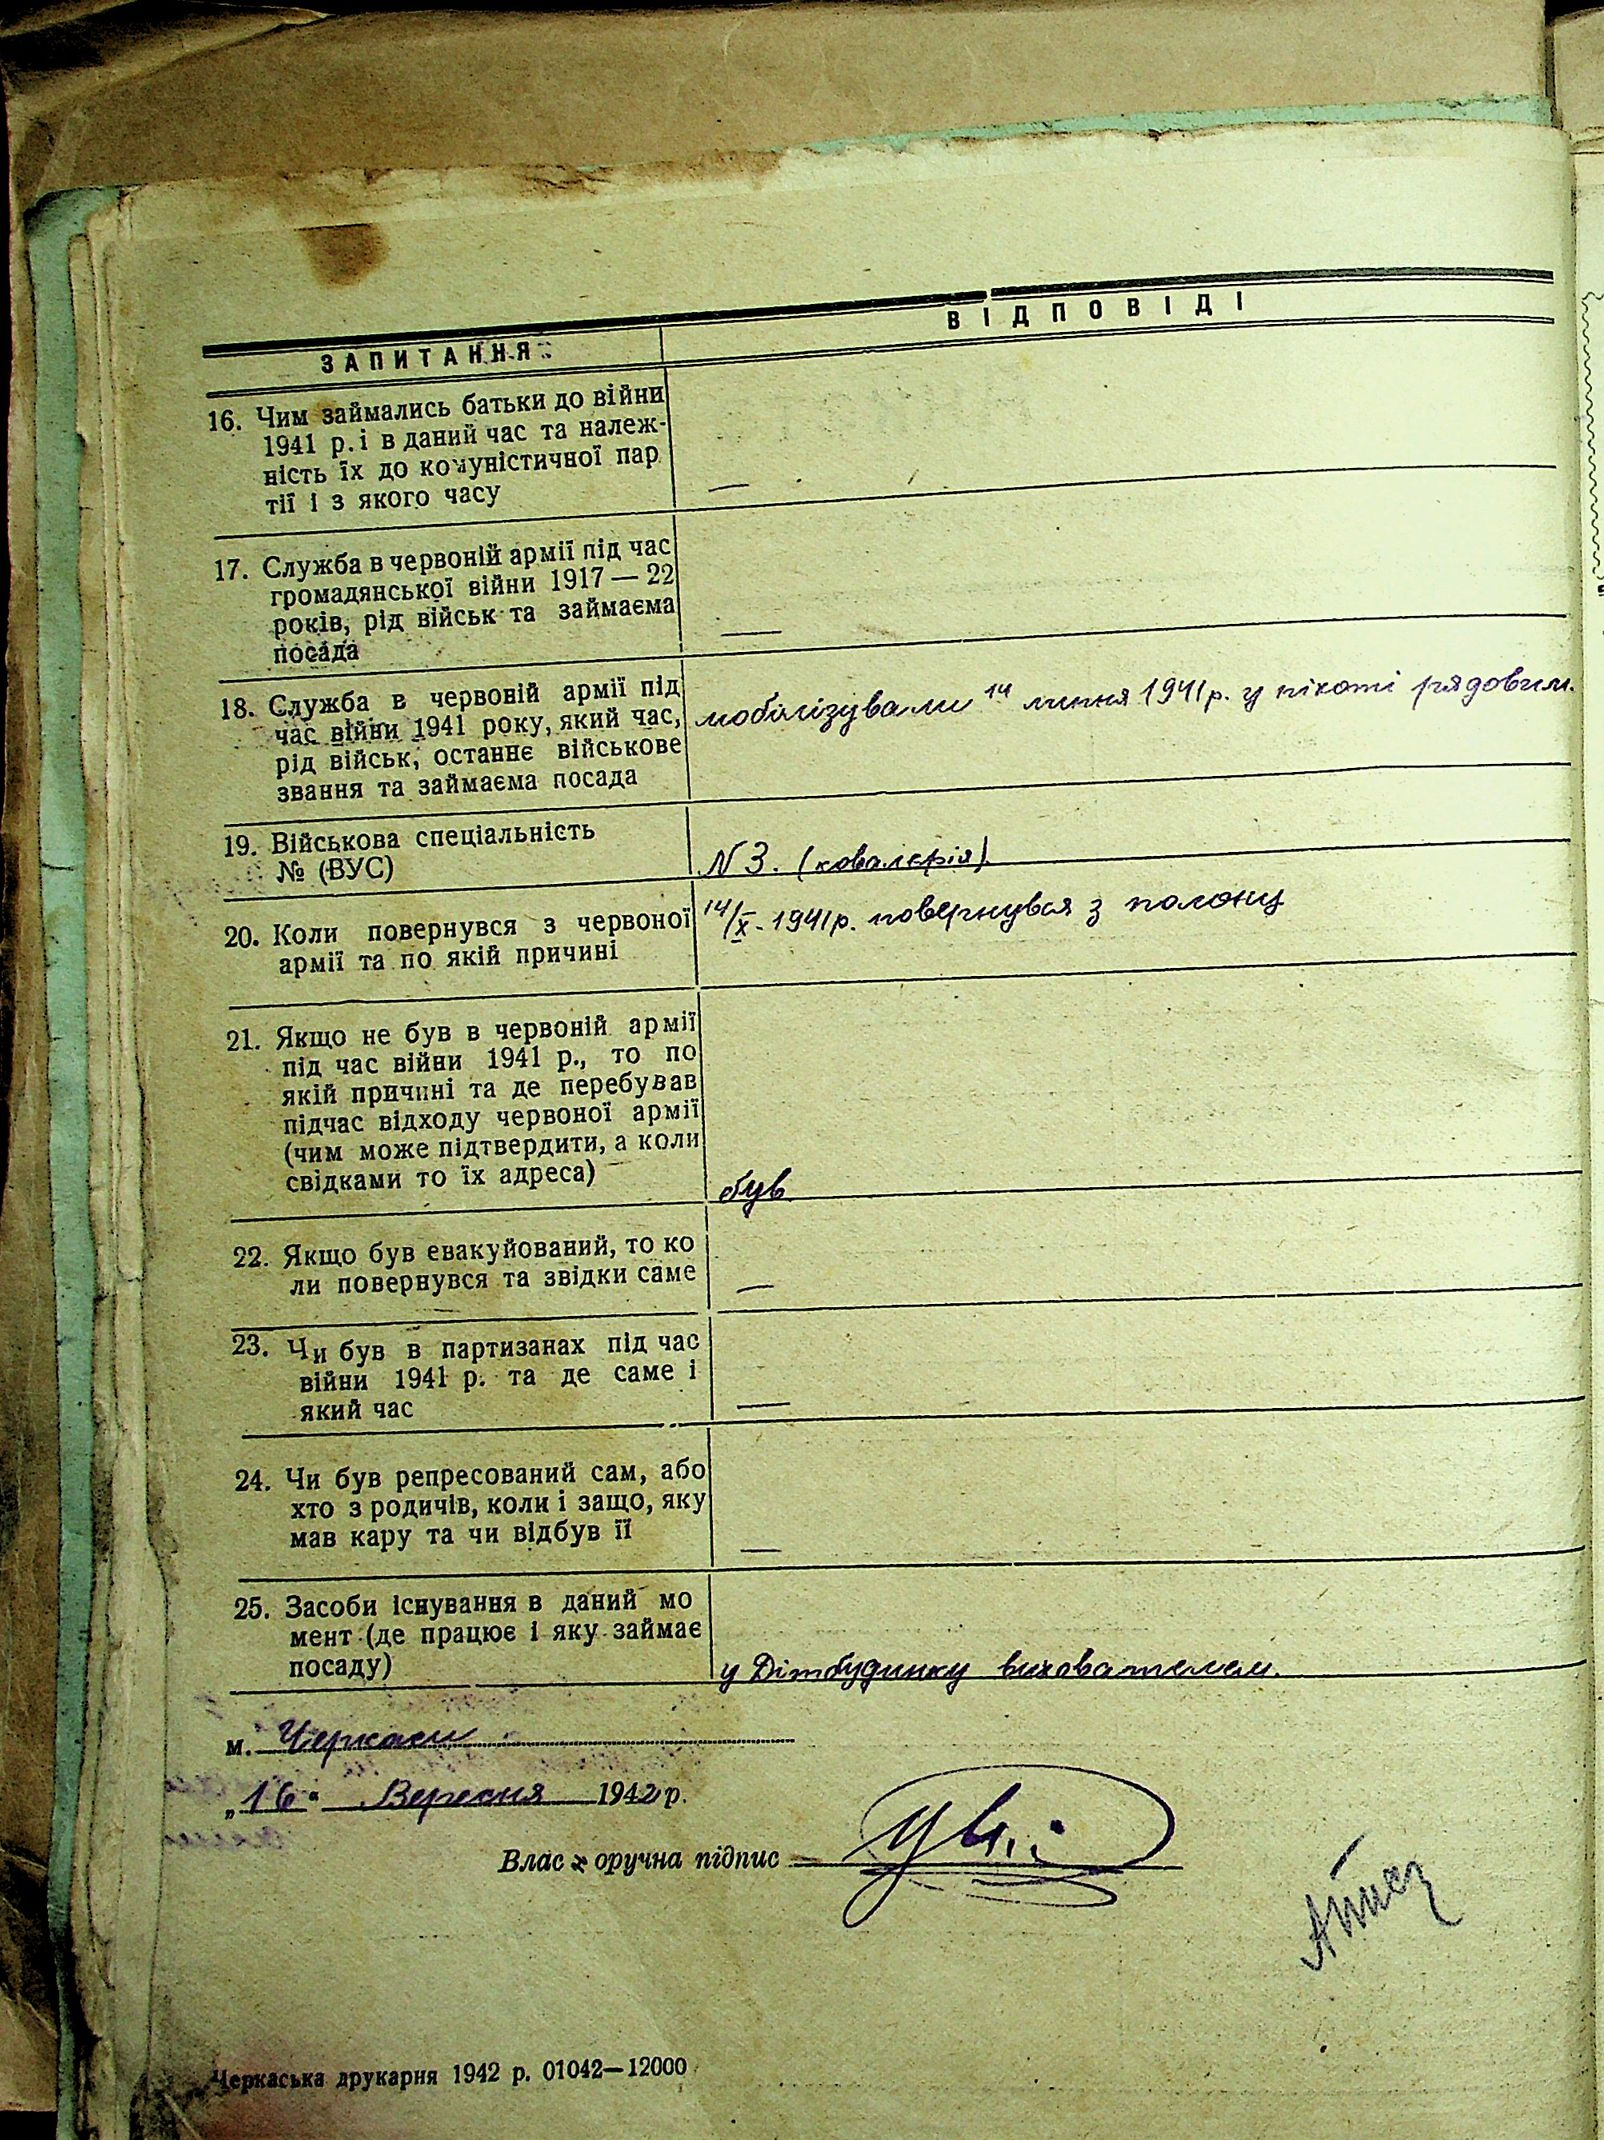 ЗАПИТАННЯ
ВІДПОВІДІ
16. Чим займались батьки до війни
1941 р. і в даний час та належ-
ність їх до комуністичної пар
тії і з якого часу
—
17. Служба в червоній армії під час
громадянської війни 1917 — 22
років, рід військ та займаєма
посада
—
18. Служба в червоній армії під
час війни 1941 року, який час,
рід військ, останнє військове
звання та займаєма посада
мобілізували 14 липня 1941 р. у піхоті рядовим.
19. Військова спеціальність
№ (ВУС)
N 3. (ковалерія)
20. Коли повернувся з червоної
армії та по якій причині
14/X - 1941 р. повернувся з полону
21. Якщо не був в червоній армії
під час війни 1941 р., то по
якій причині та де перебував
підчас відходу червоної армії
(чим може підтвердити, а коли
свідками то їх адреса)
був
22. Якщо був евакуйований, то ко
ли повернувся та звідки саме
—
23. Чи був в партизанах під час
війни 1941 р. та де саме і
який час
—
24. Чи був репресований сам, або
хто з родичів, коли і защо, яку
мав кару та чи відбув її
—
25. Засоби існування в даний мо
мент (де працює і яку займає
посаду)
у Дітбудинку вихователем.
м. Черкаси
„16" Вересня 1942 р.
Власноручна підпис
Черкаська друкарня 1942 р. 01042—12000